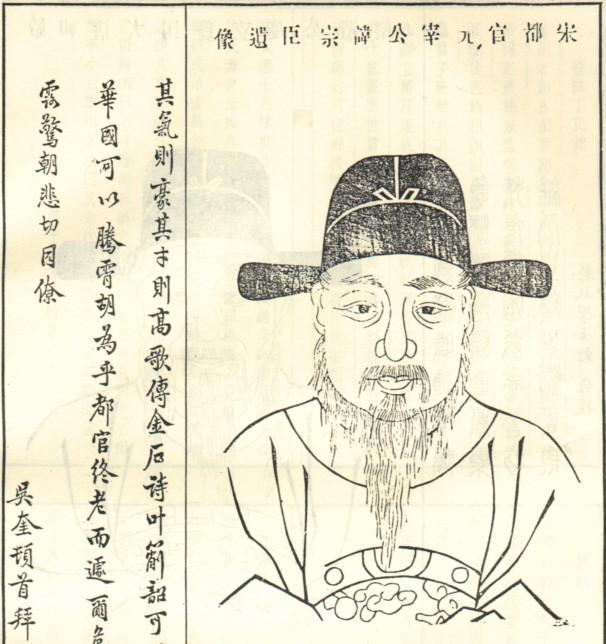 宋都官元宰公諱宗臣遺像
其氣則豪其才則高歌傳金石詩叶簫韶可
華國可以騰霄胡為乎都官終老而遽爾
露驚朝悲切同僚
吳奎頓首拜